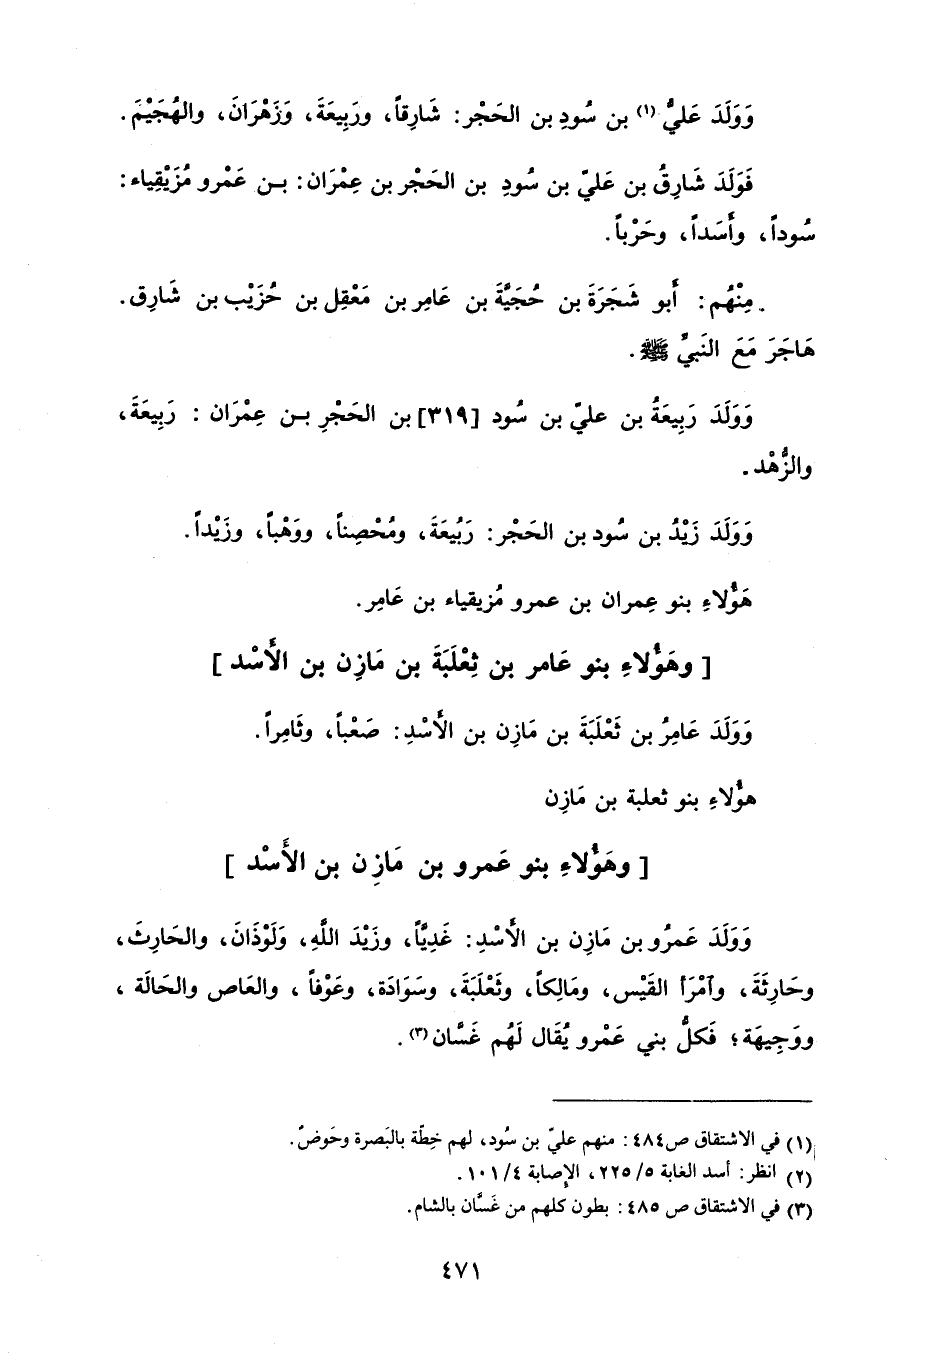 وَوَلَدَ عَليُّ (١) بن سُودِ بن الحَجْر: شَارِقاً، ورَبِيعَةَ، وَزَهْرَانَ، والهُجَيْمَ.
فَوَلَدَ شَارِقُ بن عَليّ بن سُودِ بن الحَجْر بن عِمْرَان: بـن عَمْرو مُزَيْقِياء:
سُوداً، وأَسَداً، وحَرْباً.
. مِنْهُم: أَبو شَجَرَةَ بن حُجَيَّةَ بن عَامِر بن مَعْقِل بن حُزَيْب بن شَارِق.
هَاجَرَ مَعَ النَبيُّ ﷺ.
وَوَلَدَ رَبِيعَةُ بن عليّ بن سُود [٣١٩] بن الحَجْرِ بـن عِمْرَان : رَبِيعَةَ،
والزُّهْد.
وَوَلَدَ زَيْدُ بن سُود بن الحَجْر: رَبُيعَةَ، ومُحْصِناً، ووَهْباً، وزَيْداً.
هَؤُلاءِ بنو عِمران بن عمرو مُزيقياء بن عَامِر.
[ وهَؤُلاءِ بنو عَامر بن ثِعْلَبَةَ بن مَازِن بن الأَسْد ]
وَوَلَدَ عَامِرُ بن ثَعْلَبَةَ بن مَازِن بن الأَسْدِ: صَعْباً، وثَامِراً.
هؤُلاءِ بنو ثعلبة بن مَازِن
[ وهَؤُلاءِ بنو عَمرو بن مَازِن بن الأَسْد ]
وَوَلَدَ عَمرُو بن مَازِن بن الأَسْدِ: عَدِيَّاً، وزَيْدَ اللَّهِ، وَلَوْذَانَ، والحَارِثَ،
وحَارِثَةَ، وآمْرَأ القَيْس، ومَالِكاً، وثَعْلَبَةَ، وسَوَادَة، وعَوْفاً ، والعَاص والحَالَة ،
ووَجِيهَة؛ فَكلُّ بني عَمْرو يُقَال لَهُم غَسَّان (٣).
(١) في الاشتقاق ص٤٨٤: منهم عليّ بن سُود، لهم خِطّة بالبَصرة وحَوضٌ.
(٢) انظر: أسد الغابة ٥/ ٢٢٥، الإصابة ٤/ ١٠١.
(٣) في الاشتقاق ص ٤٨٥: بطون كلهم من غسَّان بالشام.
٤٧١